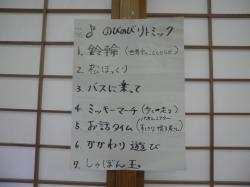 ♪ のびのびリトミック
1. 鈴輪
2. 松ぼっくり
3. バスに乗って
4. ミッキーマーチ
5. お話タイム
6. かかわり遊び
7. しゃぼん玉。